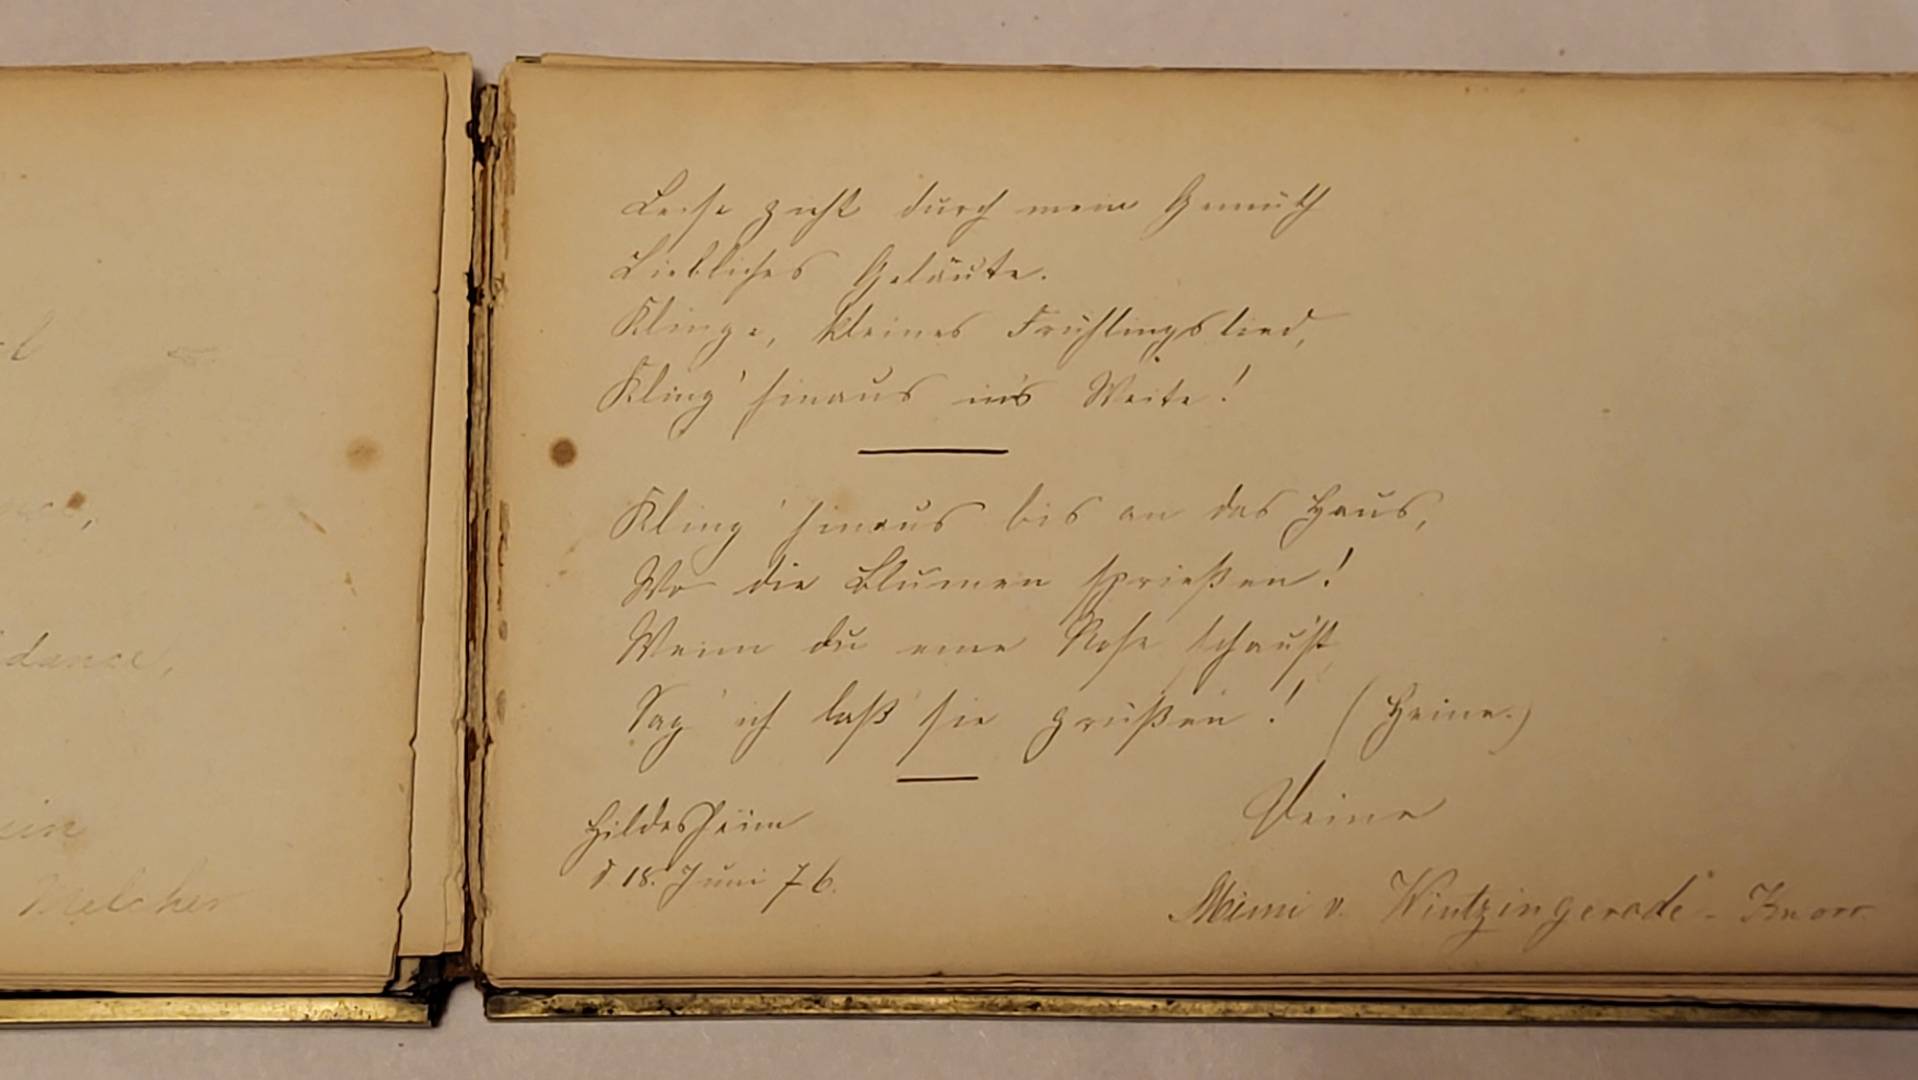 dance,
Melcher
Leise zieht durch mein Gemüth
Liebliches Geläute.
Klinge, kleines Frühlingslied,
Kling' hinaus in's Weite!
Kling' hinaus bis an das Haus,
Wo die Blumen sprießen!
Wenn du eine Rose schaust,
Sag' ich laß' sie grüßen! (Heine.)
Deine
Hildesheim
d. 18. Juni 76.
Mimi v. Wintzingerode-Knorr